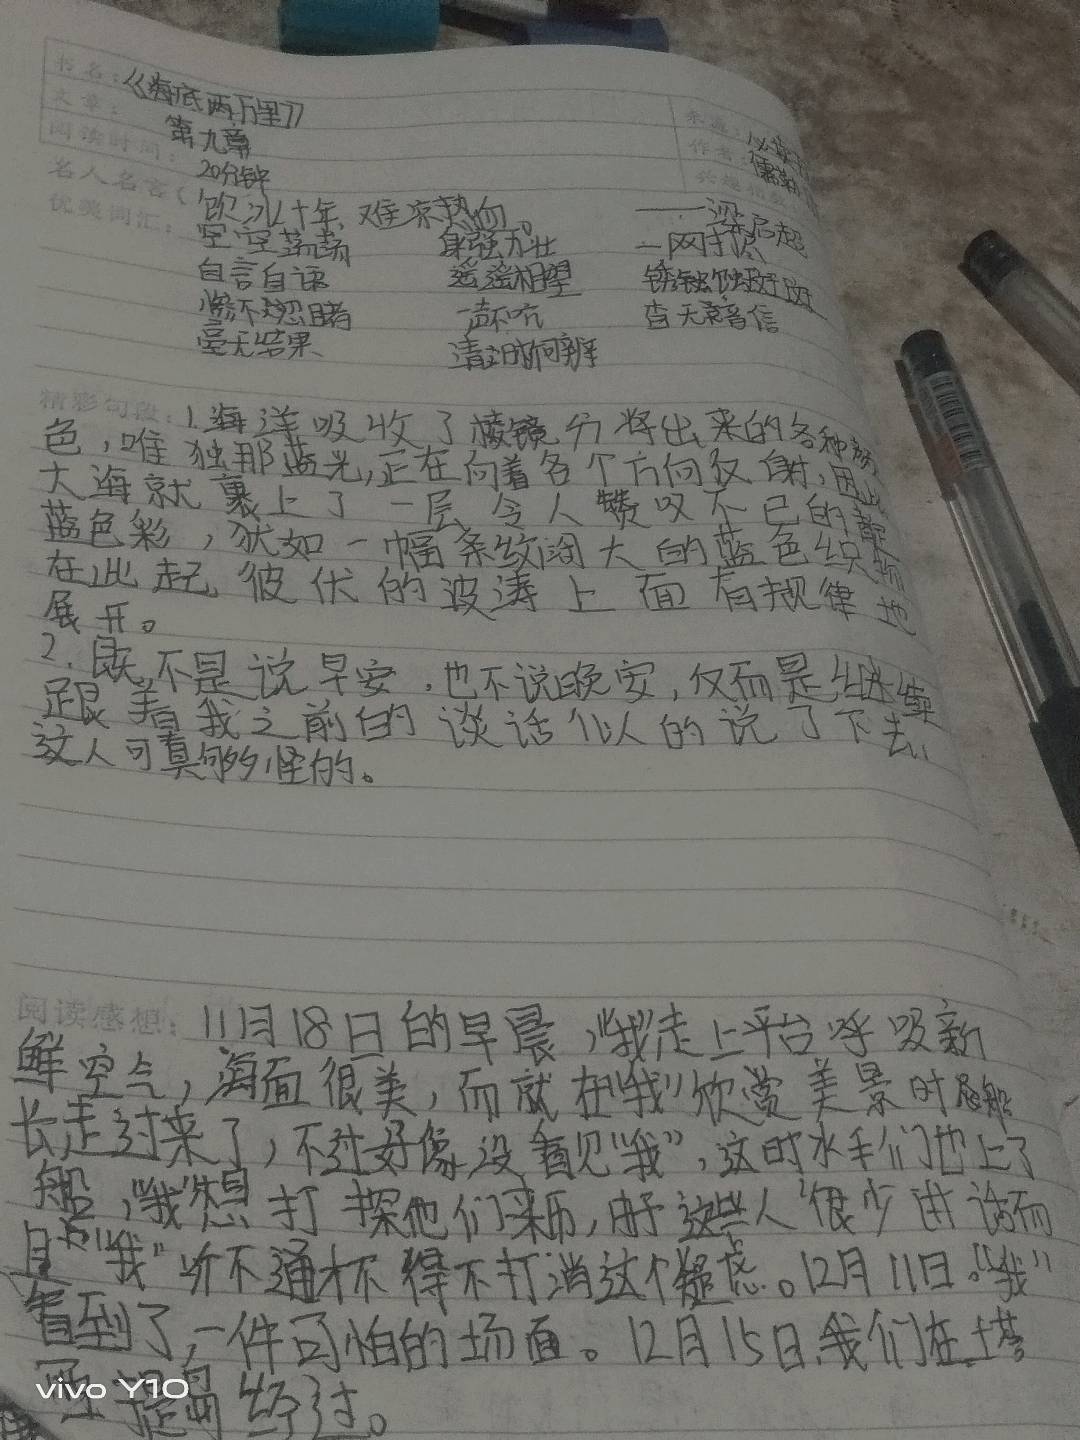 书名:《海底两万里》
文章: 第九章
作者:儒勒
阅读时间: 20分钟
名人名言(饮冰十年,难凉热血。 ——梁启超
优美词汇: 空空荡荡 身强力壮 一网打尽
自言自语 遥遥相望 锈蚀斑斑
惨不忍睹 一声不吭 杳无音信
毫无结果 清晰可辨
精彩句段: 1.海洋吸收了棱镜分将出来的各种颜
色,唯独那蓝光,正在向着各个方向反射,因此
大海就裹上了一层令人赞叹不已的靛
蓝色彩,犹如一幅条纹阔大的蓝色织物
在此起彼伏的波涛上面有规律地
展开。
2.既不是说早安,也不说晚安,仅而是继续
跟着我之前的谈话似的说了下去,
这人可真够怪的。
阅读感想: 11月18日的早晨,“我”走上平台呼吸新
鲜空气,海面很美,而就在“我”欣赏美景时尼船
长走过来了,不过好像没看见“我”,这时水手们也上了
船,“我”想打探他们来历,由于这些人很少讲话而
且“我”听不通才不得不打消这个疑虑。12月11日,“我”
看到了,一件可怕的场面。12月15日,我们在
经过。
vivo Y10